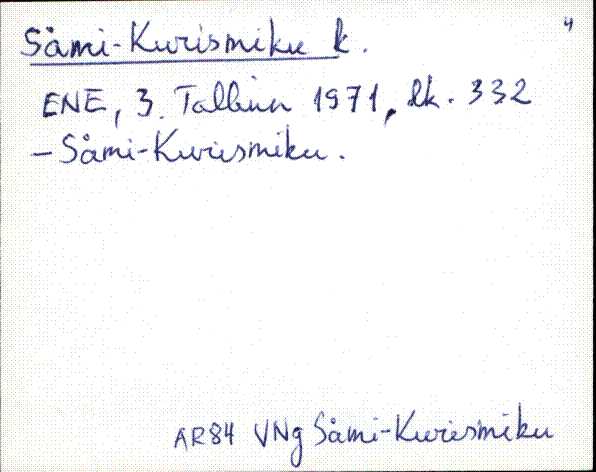 4
Sämi-Kurismiku k.
ENE, 3. Tallinn 1971, lk. 332
– Sämi-Kurismiku.
AR84 VNg Sämi-Kurismiku